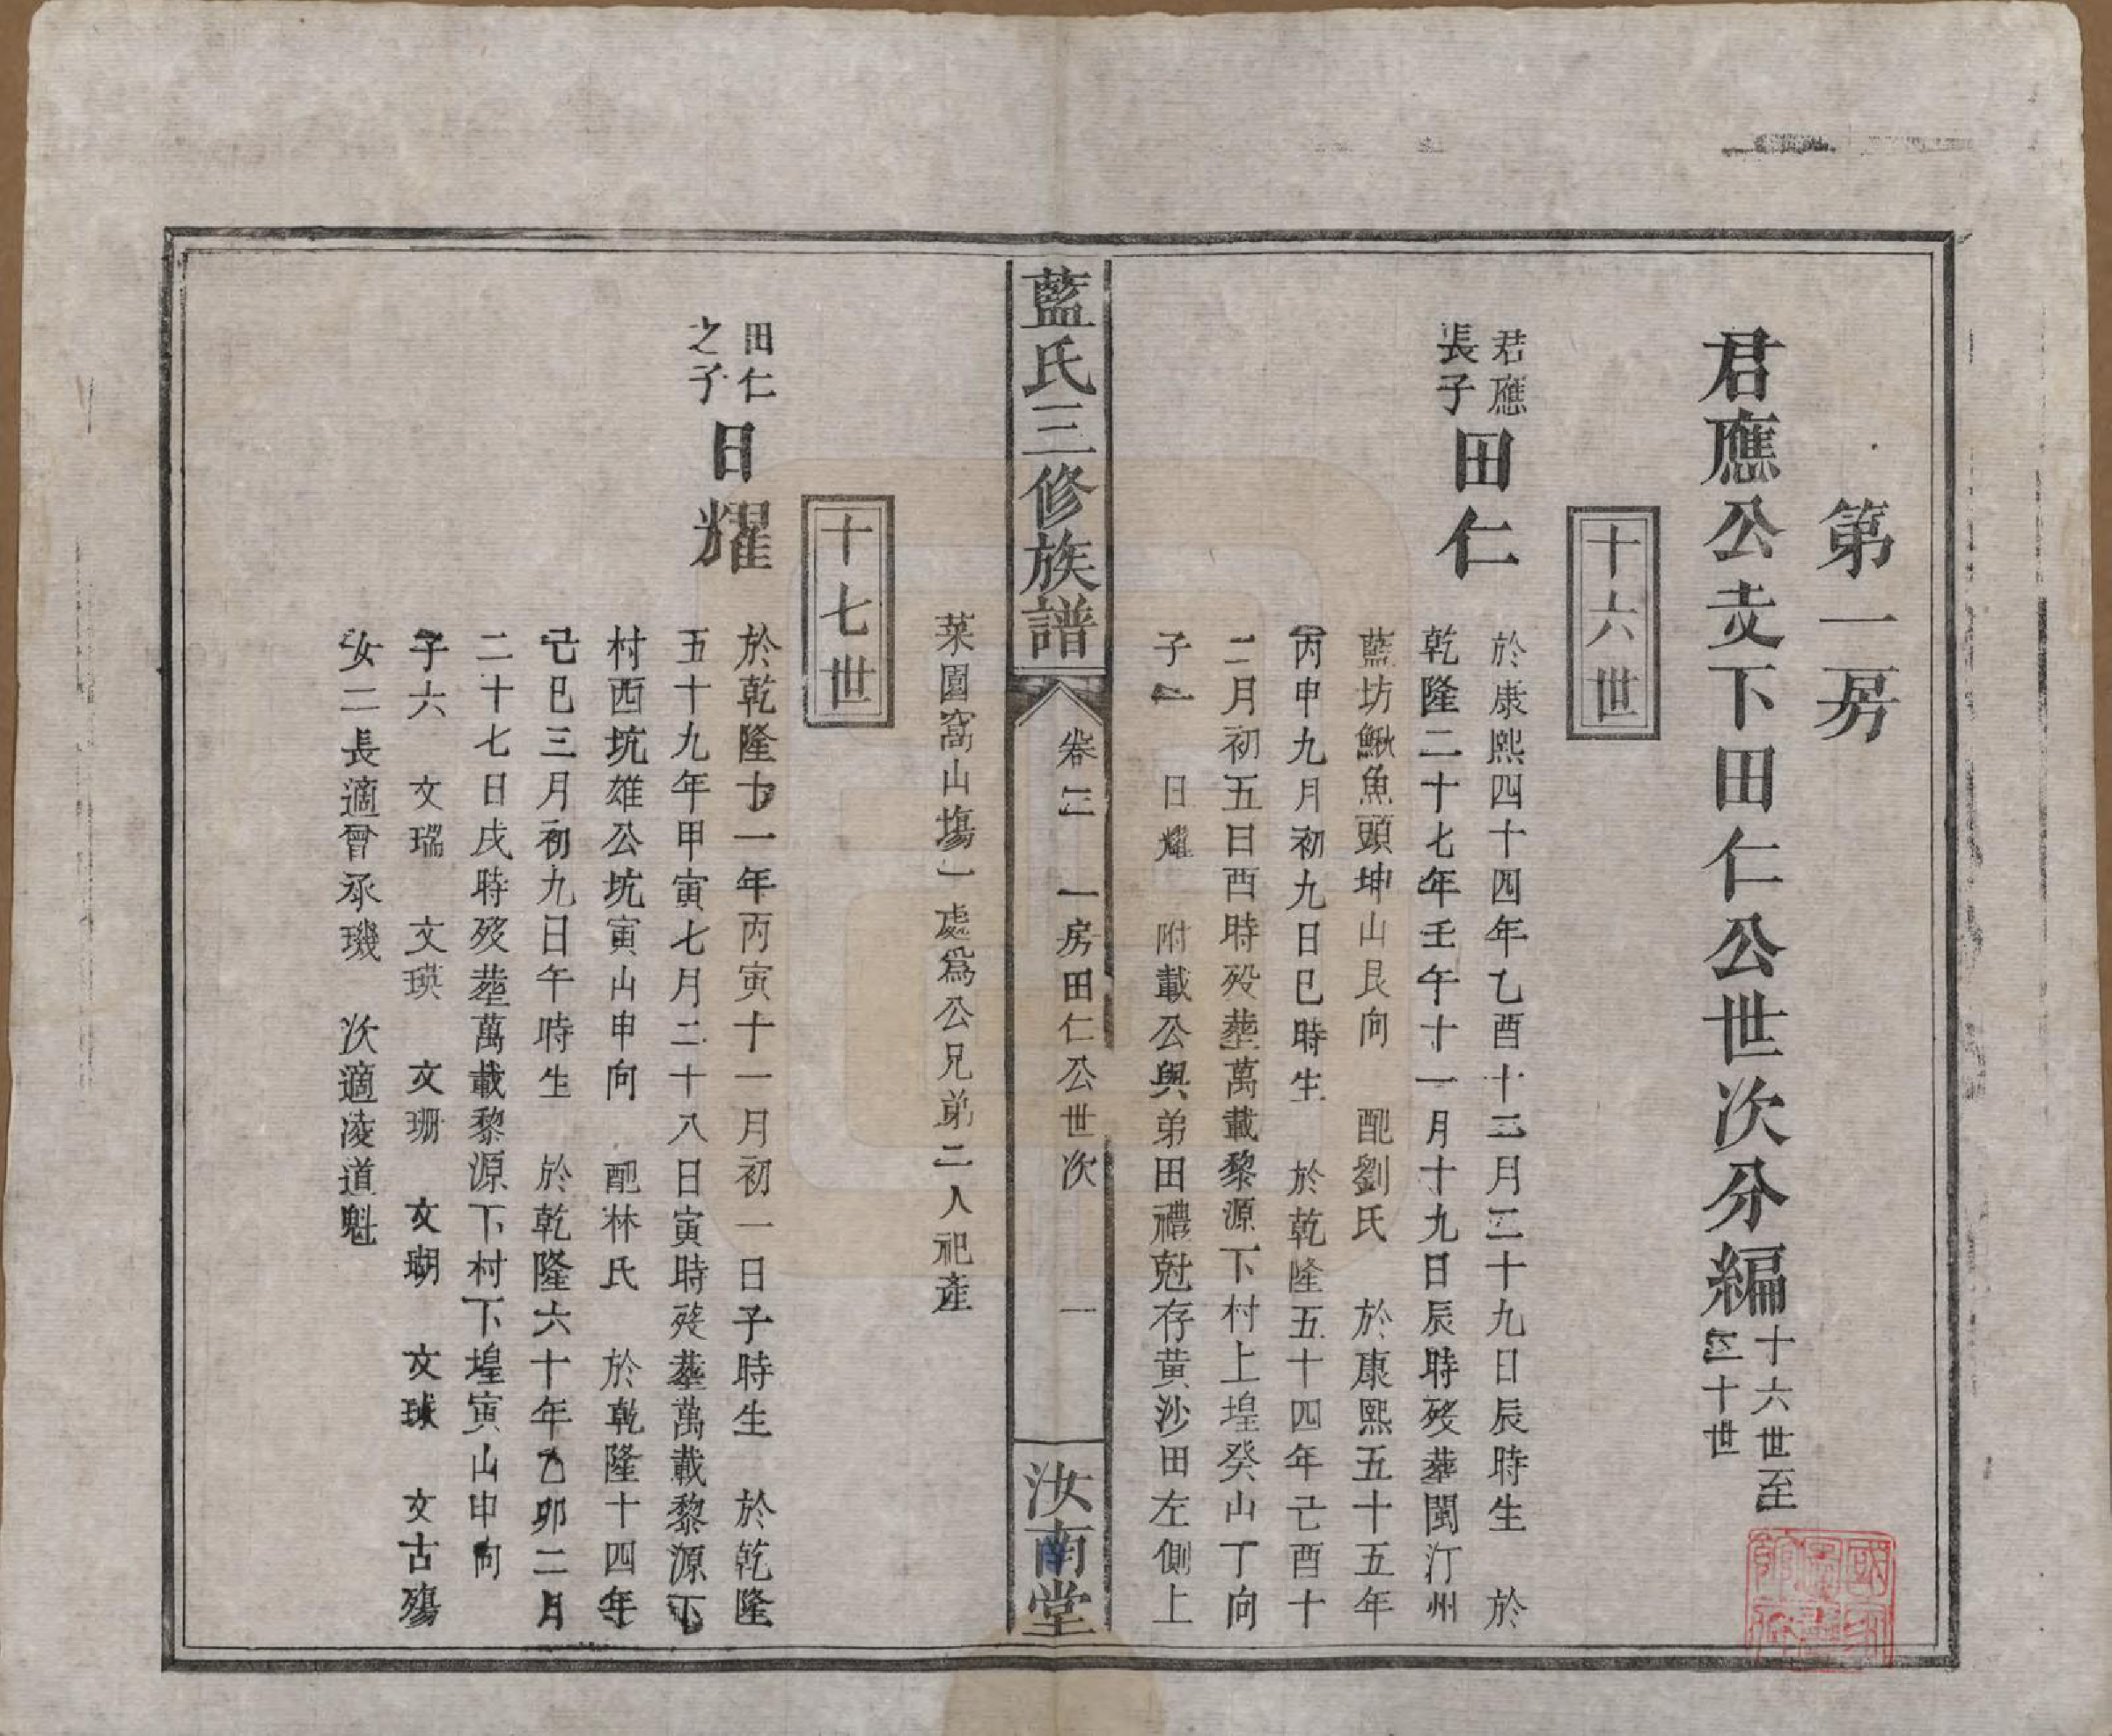 第一房
君應公支下田仁公世次分編十六世至三十世
十六世
君應長子田仁
於康熙四十四年乙酉十三月二十九日辰時生　於
乾隆二十七年壬午十一月十九日辰時殁葬閩汀州
藍坊鰍魚頭坤山艮向　配劉氏　於康熙五十五年
丙申九月初九日巳時生　於乾隆五十四年己酉十
二月初五日酉時殁葬萬載黎源下村上堭癸山丁向
子一　日耀　附載公與弟田禮尅存黃沙田左側上
藍氏三修族譜
卷三　一房田仁公世次　一
汝南堂
菜園窩山塲一處爲公兄弟二人祀產
十七世
田仁之子日耀
於乾隆十一年丙寅十一月初一日子時生　於乾隆
五十九年甲寅七月二十八日寅時殁葬萬載黎源下
村西坑雄公坑寅山申向　配林氏　於乾隆十四年
己巳三月初九日午時生　於乾隆六十年乙卯二月
二十七日戌時殁葬萬載黎源下村下堭寅山申向
子六　文瑞　文瑛　文珊　文瑚　文球　文古殤
女二長適曾承璣　次適凌道魁